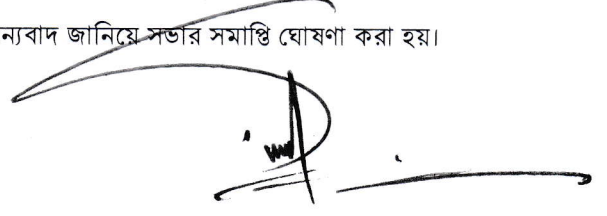 ন্যবাদ জানিয়ে সভার সমাপ্তি ঘোষণা করা হয়।